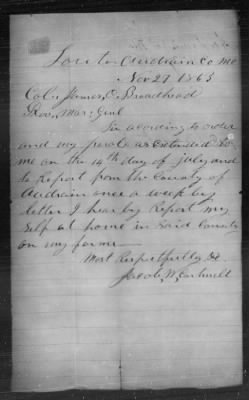 Audrain Co Mo
Nov 27 1863
Col James O Broadhead
Prov Mar Genl
Sir acording to order
and my parole as Extended to
me on the 14th day of july and
to Report from the County of
Audrain once a week by
letter I hear by Report my
self at home in said County
on my farm
Most Respectfully &c
Jacob W